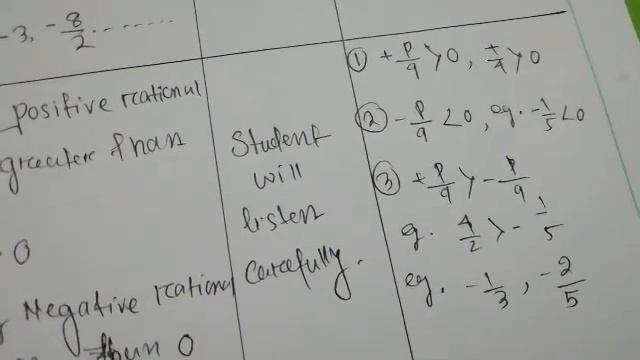 -3, -8/2 ........
positive rational
greater than
0
Negative rational
than 0
Student
will
listen
carefully.
① +p/q > 0, +/4 > 0
② -p/q < 0, eg. -1/5 < 0
③ +p/q > -p/q
eg. 4/2 > -1/5
eg. -1/3, -2/5